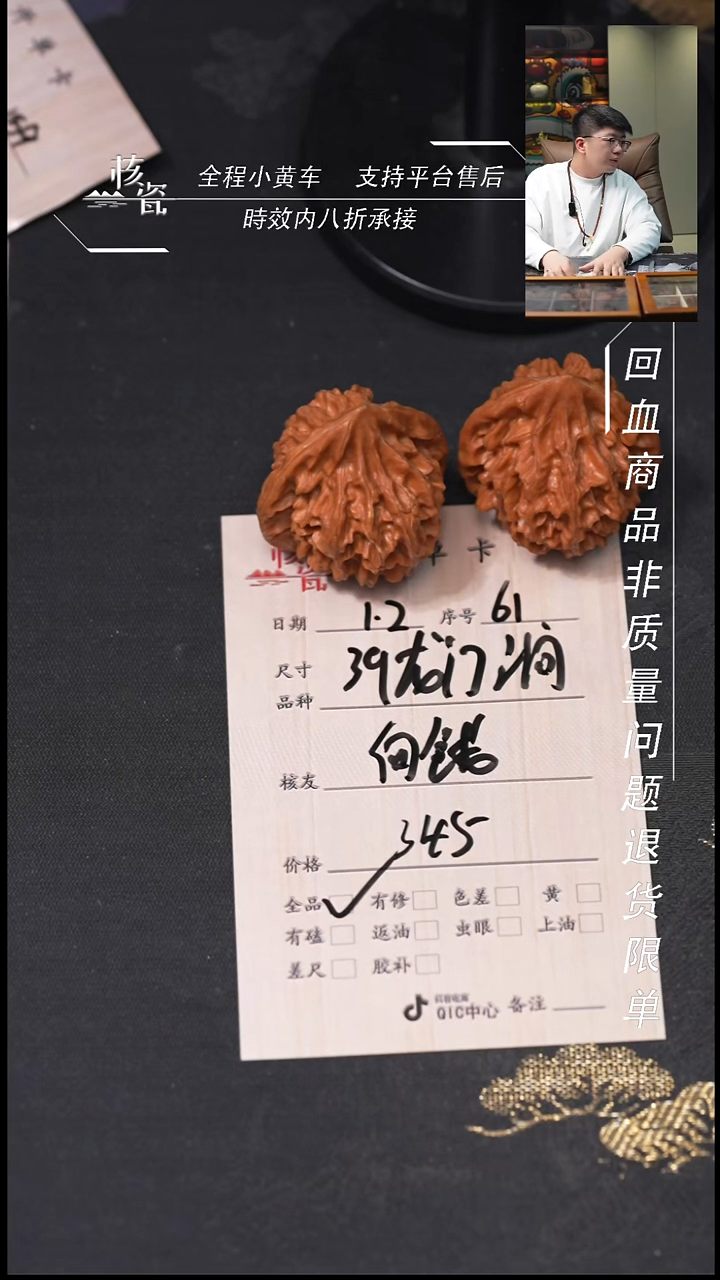 开单卡
核瓷
全程小黄车 支持平台售后
時效内八折承接
回血商品非质量问题退货限单
核瓷 单卡
日期 1.2 序号 61
尺寸
品种 39龙门涧
核友
价格 345
全品 有修 色差 黄
有磕 返油 虫眼 上油
差尺 胶补
QIC中心 备注